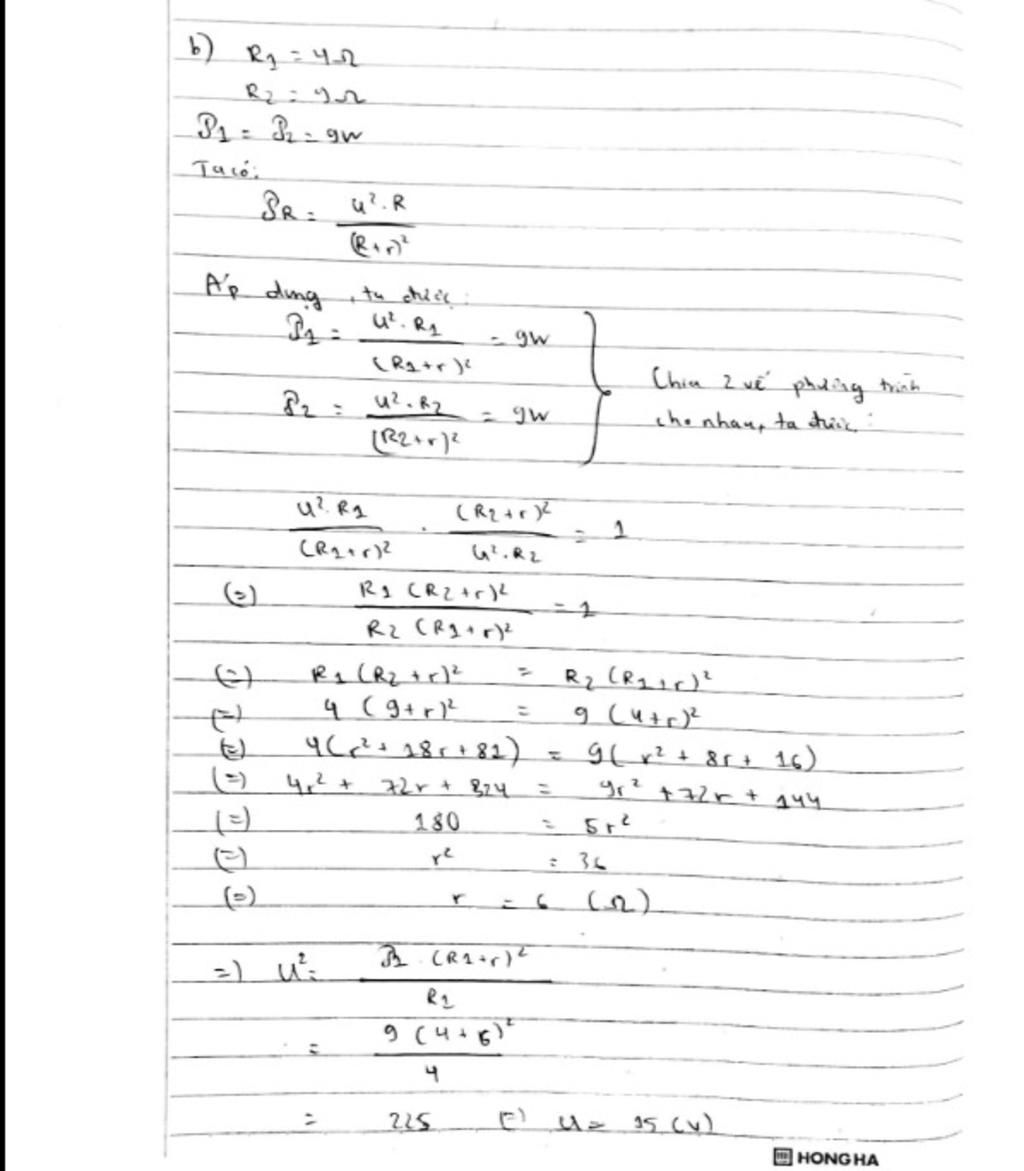 b) R1 = 4Ω
R2 = 9Ω
P1 = P2 = 9W
Ta có:
PR = U².R / (R+r)²
Áp dụng, ta được:
P1 = U².R1 / (R1+r)² = 9W
P2 = U².R2 / (R2+r)² = 9W
Chia 2 vế phương trình
cho nhau, ta được:
U².R1 / (R1+r)² . (R2+r)² / U².R2 = 1
(=) R1 (R2+r)² / R2 (R1+r)² = 1
(=) R1 (R2+r)² = R2 (R1+r)²
(=) 4 (9+r)² = 9 (4+r)²
(=) 4(r² + 18r + 81) = 9(r² + 8r + 16)
(=) 4r² + 72r + 824 = 9r² + 72r + 144
(=) 180 = 5r²
(=) r² = 36
(=) r = 6 (Ω)
=) U² = P1 . (R1+r)² / R1
= 9 (4+6)² / 4
= 225 (=) U = 15 (V)
HONG HA